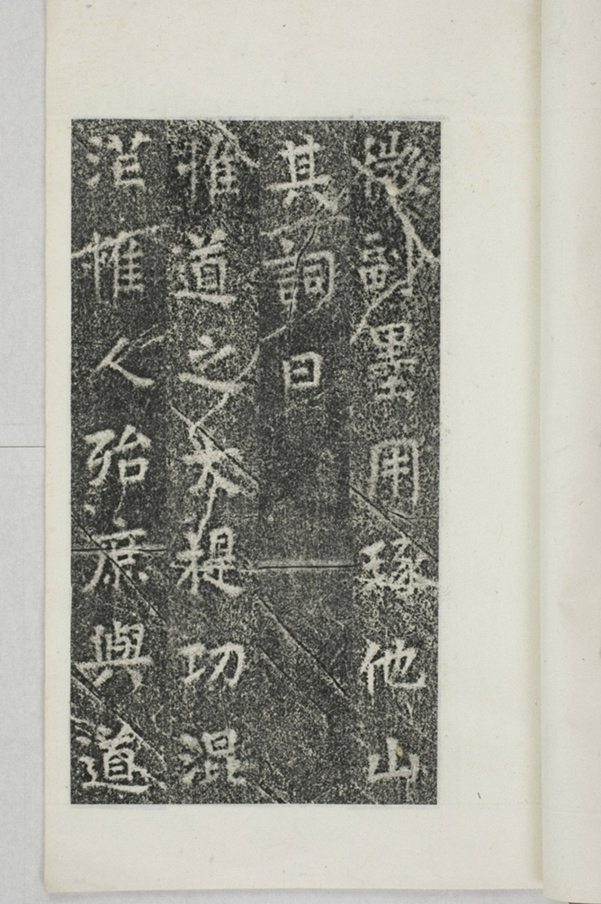 墨用琢他山
其詞曰
惟道之大功混
茫惟人殆庶與道